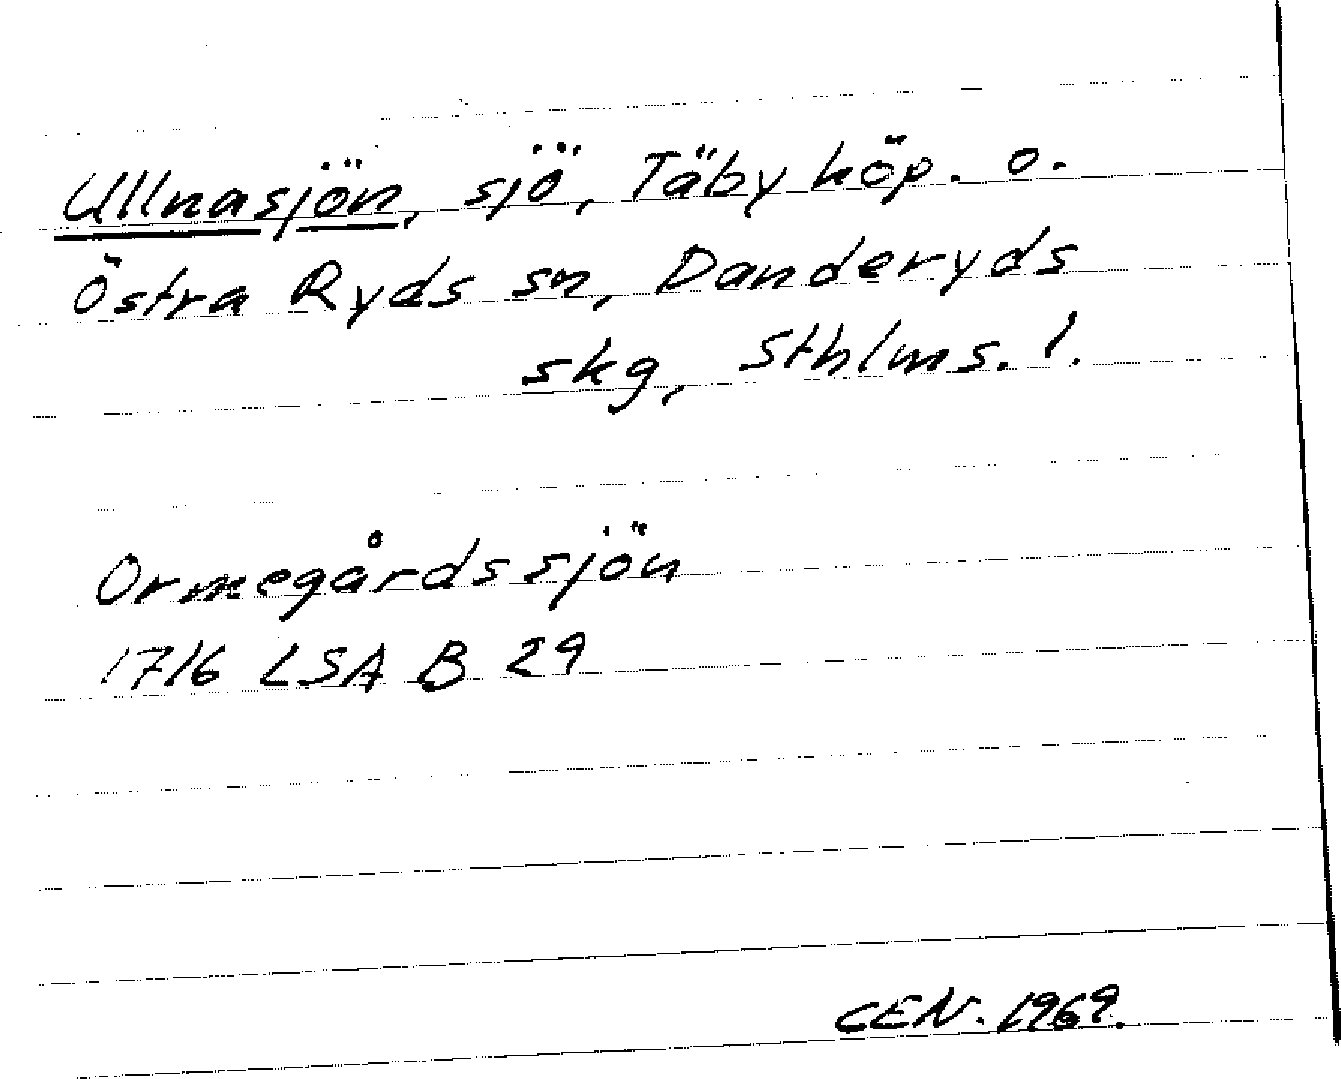 Ullnasjön, sjö, Täby köp. o.
Östra Ryds sn, Danderyds
skg, Sthlms. l.
Ormegårdssjön
1716 LSA B 29
CEN. 1969.